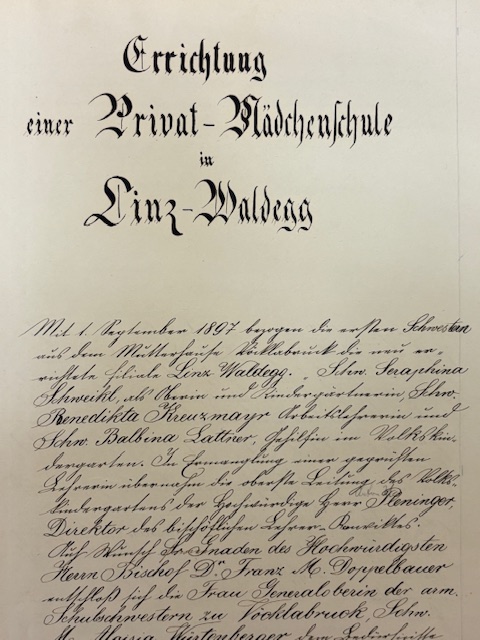 Errichtung
einer Privat-Mädchenschule
in
Linz-Waldegg
Mit 1. September 1897 bezogen die ersten Schwestern
aus dem Mutterhause Vöcklabruck die neu er-
richtete Filiale Linz Waldegg. Schw. Seraphina
Schweikl, als Oberin und Kindergärtnerin, Schw.
Benedikta Kreuzmayr Arbeitslehrerin und
Schw. Balbina Lattner, Gehilfin im Volkskin-
dergarten. In Ermanglung einer geprüften
Lehrerin übernahm die oberste Leitung des Volks-
kindergartens der Hochwürdige Herr Pleninger,
Direktor des bischöflichen Lehrer-Konviktes.
Auf Wunsch Sr. Gnaden des Hochwürdigsten
Herrn Bischof Dr. Franz M. Doppelbauer
entschloß sich die Frau Generaloberin der arm.
Schulschwestern zu Vöcklabruck, Schw.
M. Aloisia Würtenberger dem Bedürfnisse